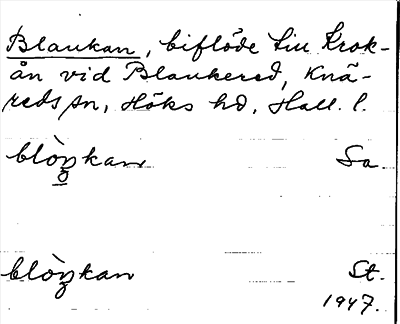 Blankan, biflöde till Krok-
ån vid Blankered, Knä-
reds sn, Höks hd, Hall. l.
blòŋkan Sa.
blòŋkan St.
1947.